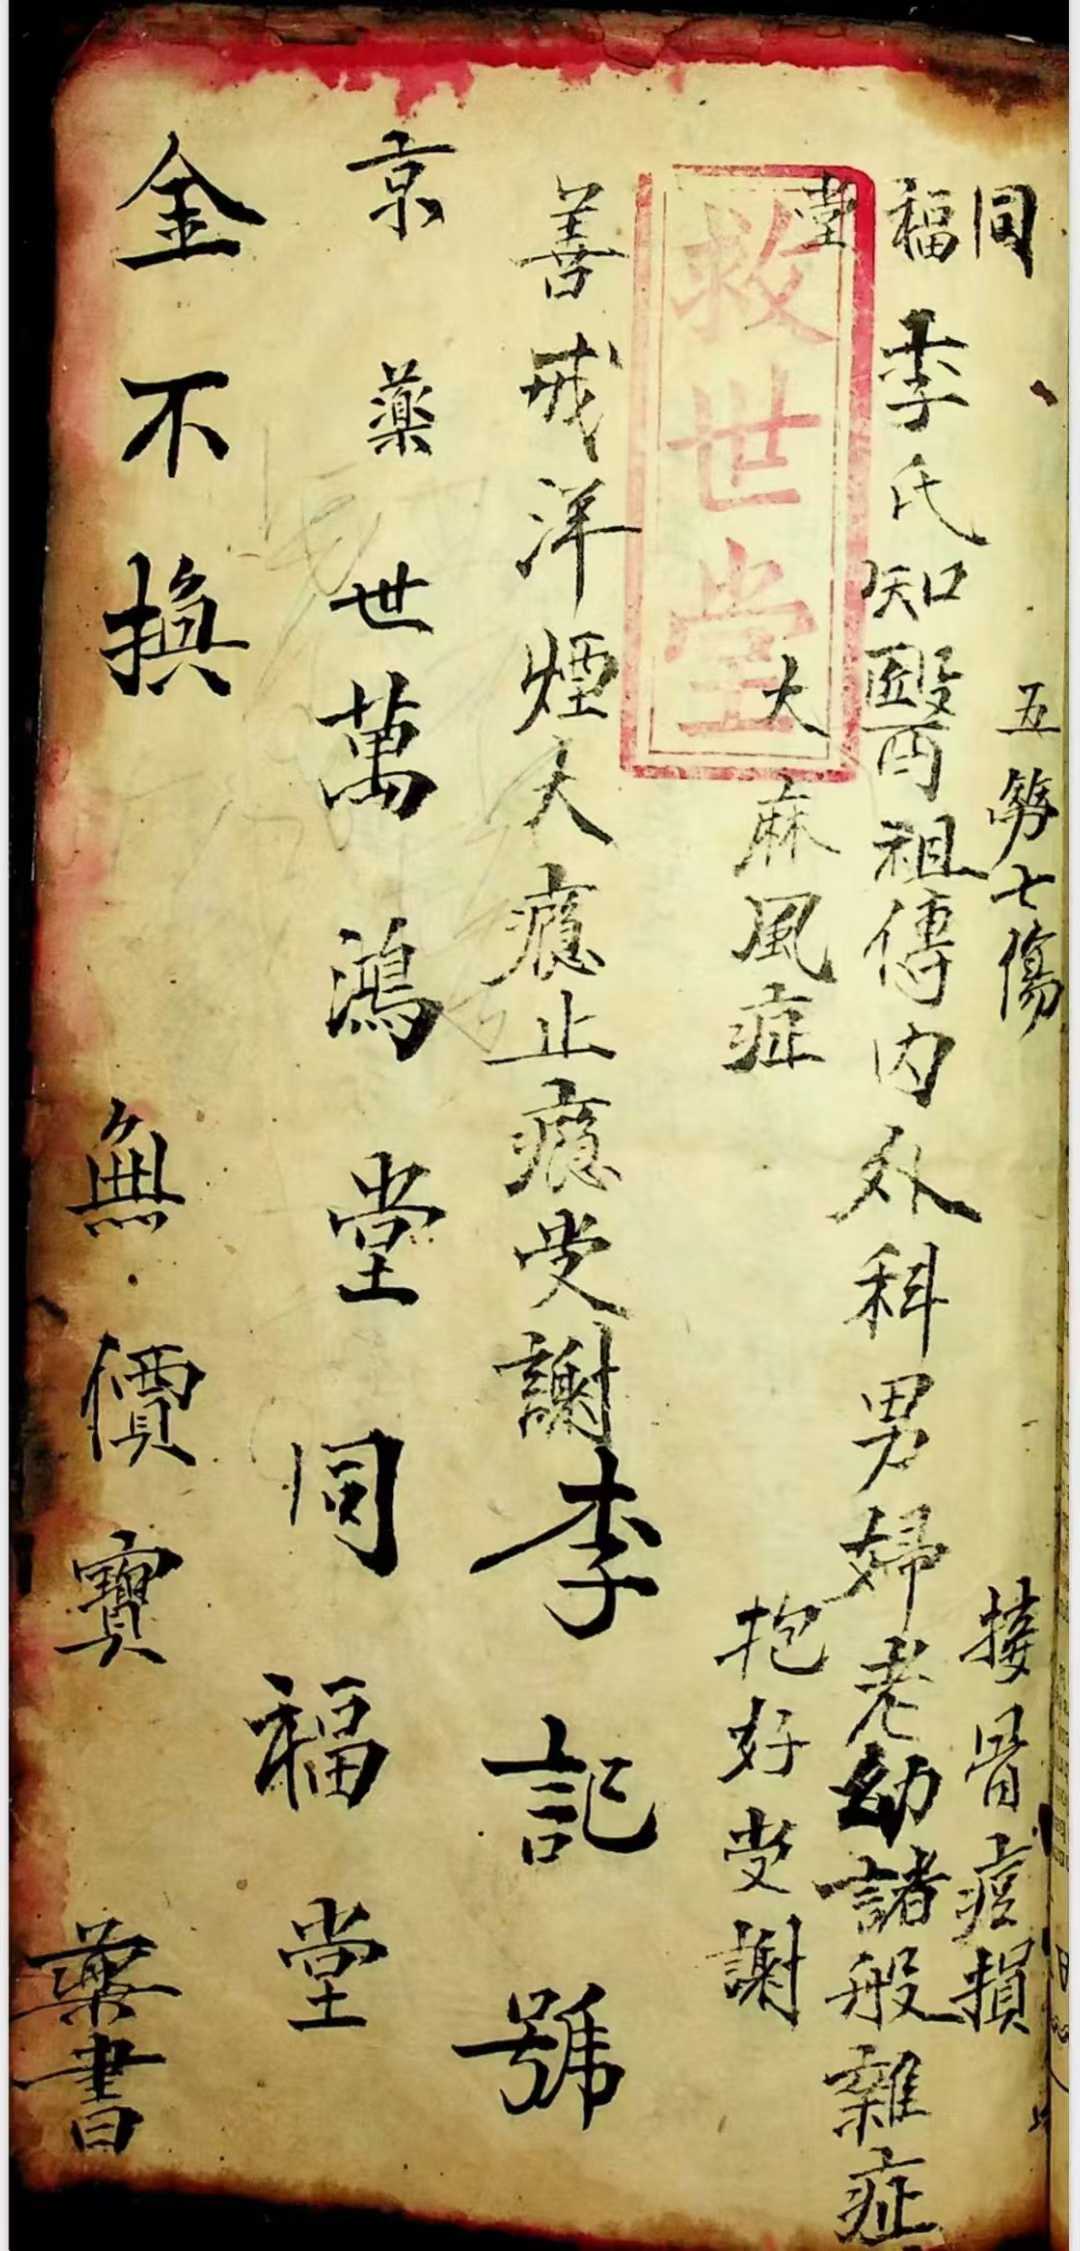 同福堂
五勞七傷
接骨痘損
李氏知醫祖傳内外科男婦老幼諸般雜症
大麻風症
抱好受謝
救世堂
善戒洋煙大癮止癮受謝李記號
京藥世萬鴻堂同福堂
金不換
無價寶
藥書